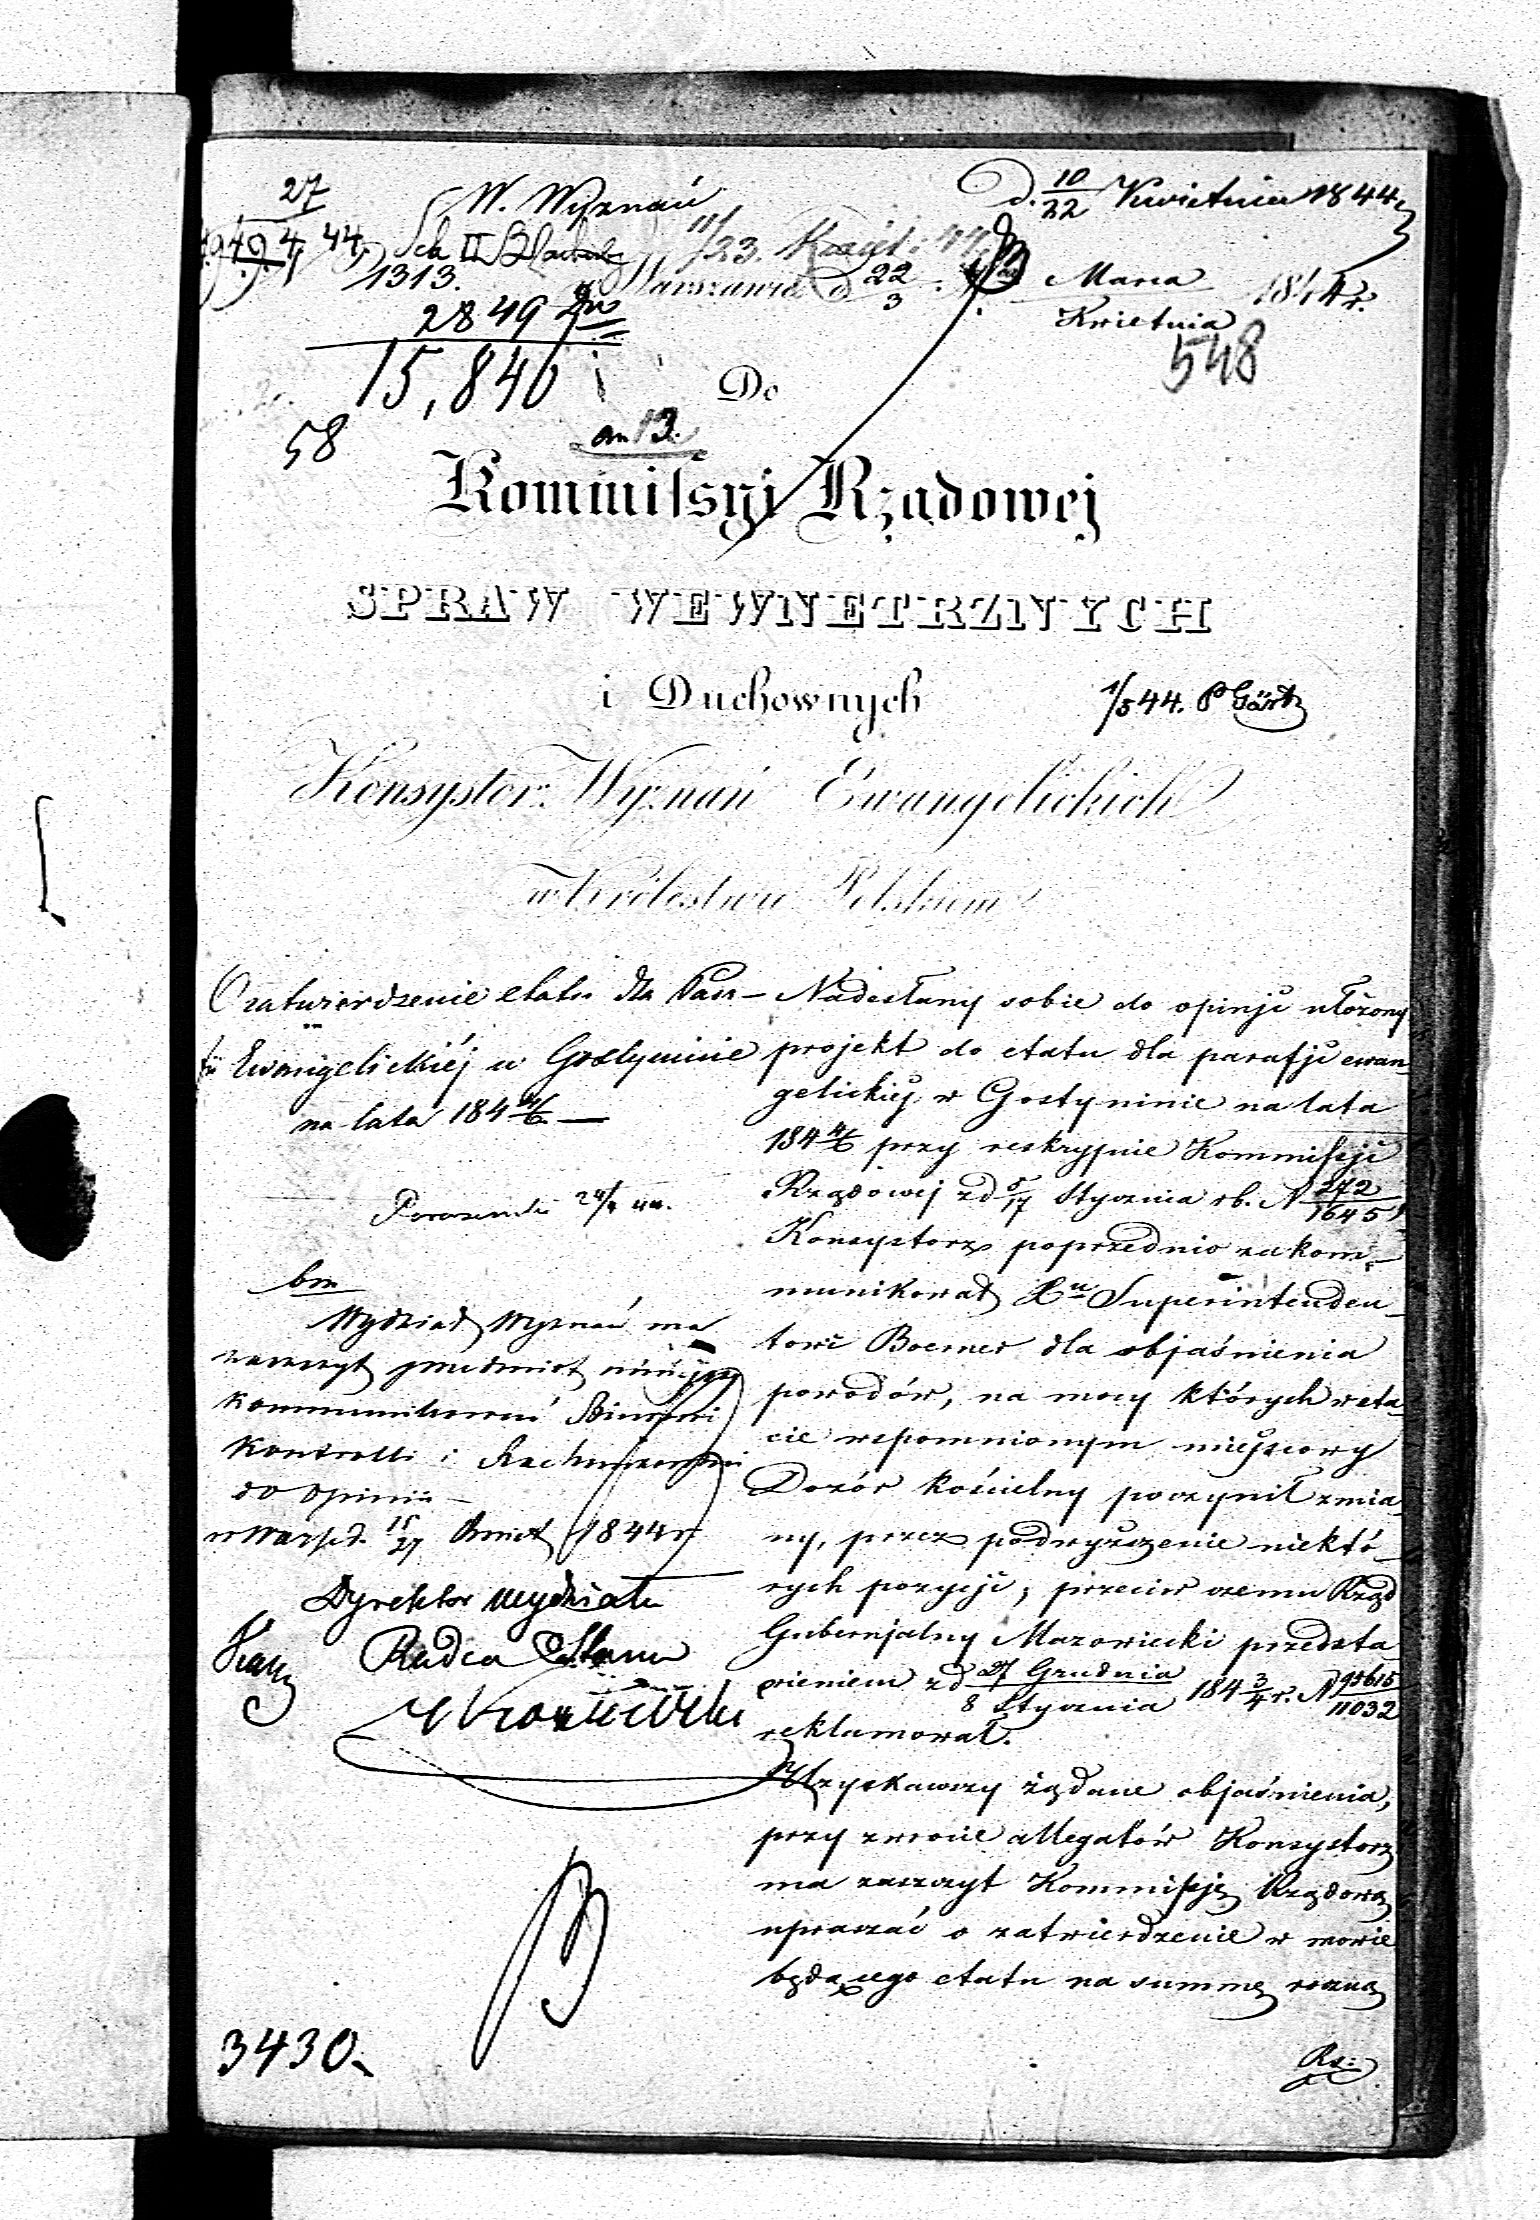 27
W. Wyznań
D. 10/22 Kwietnia 1844.
44
1313.
11/23.
Warszawa d 22/3 Marca/Kwietnia 1844 r.
2849
15,840
548
Do
58
an 13.
Kommissyi Rządowej
SPRAW WEWNETRZNYCH
i Duchownych
1/5 44. P Gärtz
Konsystorz Wyznań Ewangelickich
w Królestwie Polskiem
O zatwierdzenie etatu dla Para-
fii Ewangelickiéj w Gostyninie
na lata 184 4/6. —
bm
Wydział Wyznań ma
zaszczyt przedmiot niniejszy
kommunikować Biurowi
Kontrolli i Rachunkowości
do opinii —
w Warsz. d. 15/27 Kwiet 1844 r.
Dyrektor Wydziału
Radca Stanu
3430.
Nadesłany sobie do opinji ułożony
projekt do etatu dla parafji ewan-
gelickiej w Gostyninie na lata
184 4/6 przy reskrypcie Kommissji
Rządowej z d 5/17 Stycznia r b. N 272/1645,
Konsystorz poprzednio zakom-
munikował Xu Superintenden-
towi Boerner dla objaśnienia
powodów, na mocy których w eta-
cie wspomnionym miejscowy
Dozór kościelny poczynił zmia
ny, przez podwyższenie niektó
rych pozycji, przeciw czemu Rząd
Gubernjalny Mazowiecki przedsta
wieniem z d 27 Grudnia/8 Stycznia 184 3/4 r. N 95615/11032
reklamował.
Uzyskawszy żądane objaśnienia,
przy zwrocie allegatów Konsystorz
ma zaszczyt Kommissję Rządową
upraszać o zatwierdzenie w mowie
będącego etatu na summę roczną
Rs: